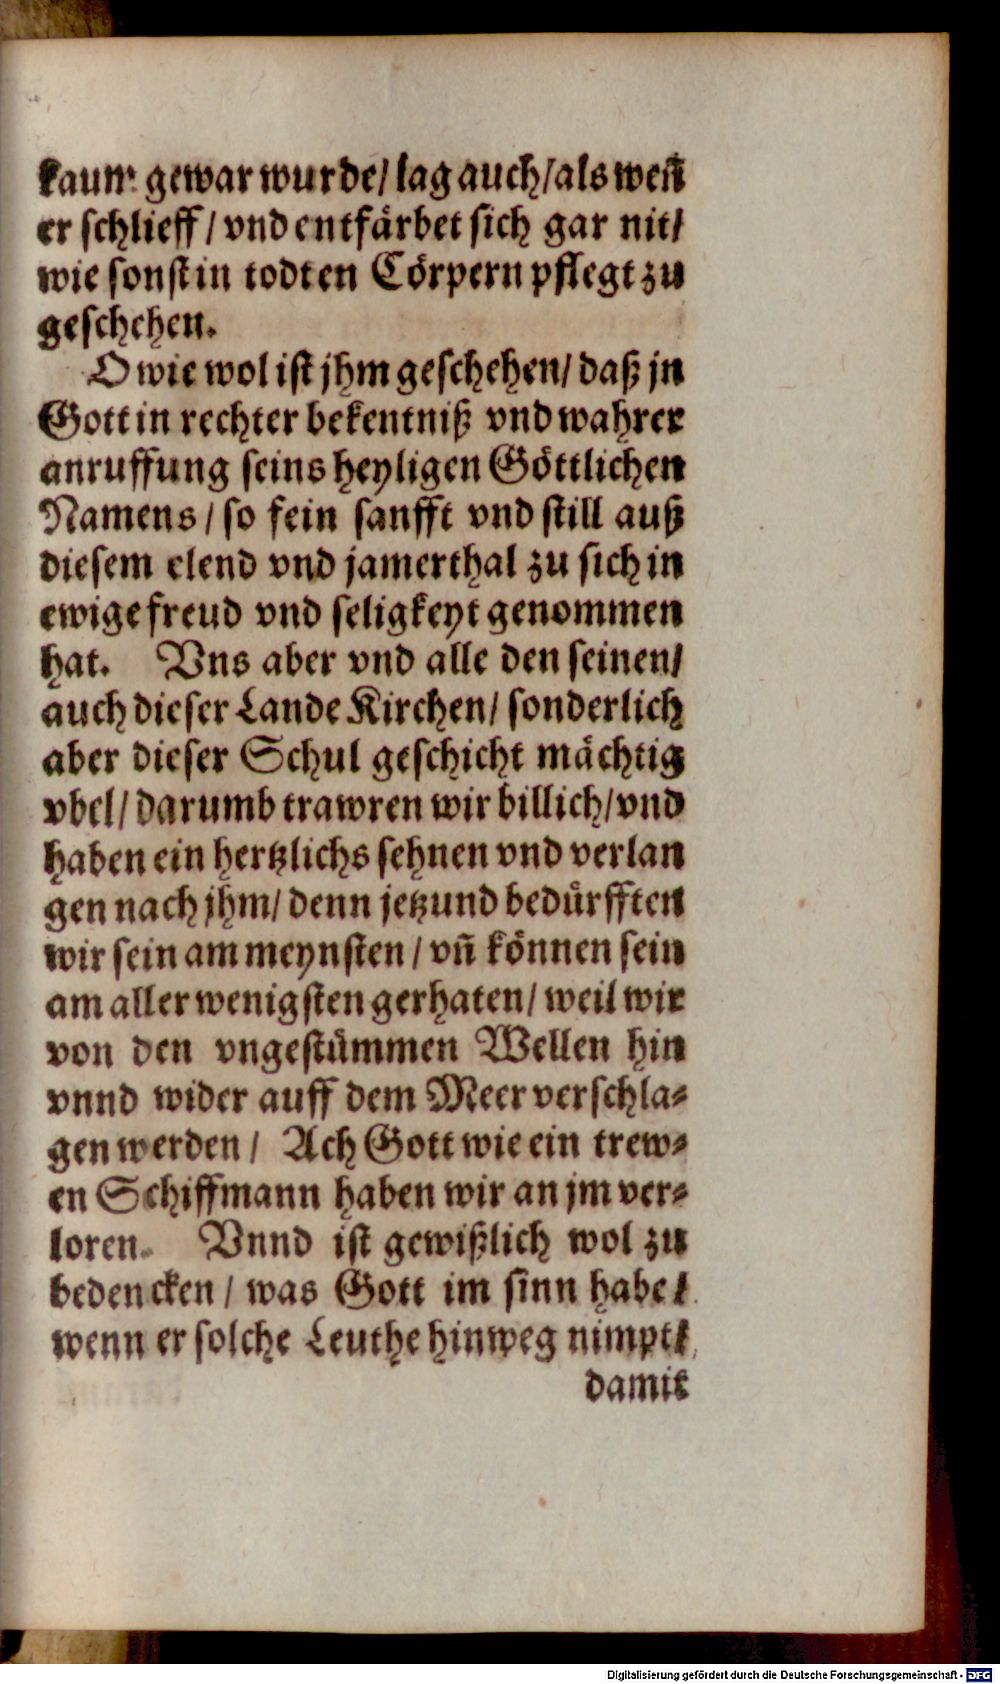 kaum gewar wurde/ lag auch/ als wenn
er schlieff/ vnd entfärbet sich gar nit/
wie sonst in todten Cörpern pflegt zu
geschehen.
O wie wol ist jhm geschehen/ daß jn
Gott in rechter bekentniß vnd wahrer
anruffung seins heyligen Göttlichen
Namens/ so fein sanfft vnd still auß
diesem elend vnd jamerthal zu sich in
ewige freud vnd seligkeyt genommen
hat. Vns aber vnd alle den seinen/
auch dieser Lande Kirchen/ sonderlich
aber dieser Schul geschicht mächtig
vbel/ darumb trawren wir billich/ vnd
haben ein hertzlichs sehnen vnd verlan
gen nach jhm/ denn jetzund bedürfften
wir sein am meynsten/ vn̄ können sein
am aller wenigsten gerhaten/ weil wir
von den vngestümmen Wellen hin
vnnd wider auff dem Meer verschla-
gen werden/ Ach Gott wie ein trew-
en Schiffmann haben wir an jm ver-
loren. Vnnd ist gewißlich wol zu
bedencken/ was Gott im sinn habe/
wenn er solche Leuthe hinweg nimpt/
damit
Digitalisierung gefördert durch die Deutsche Forschungsgemeinschaft - DFG